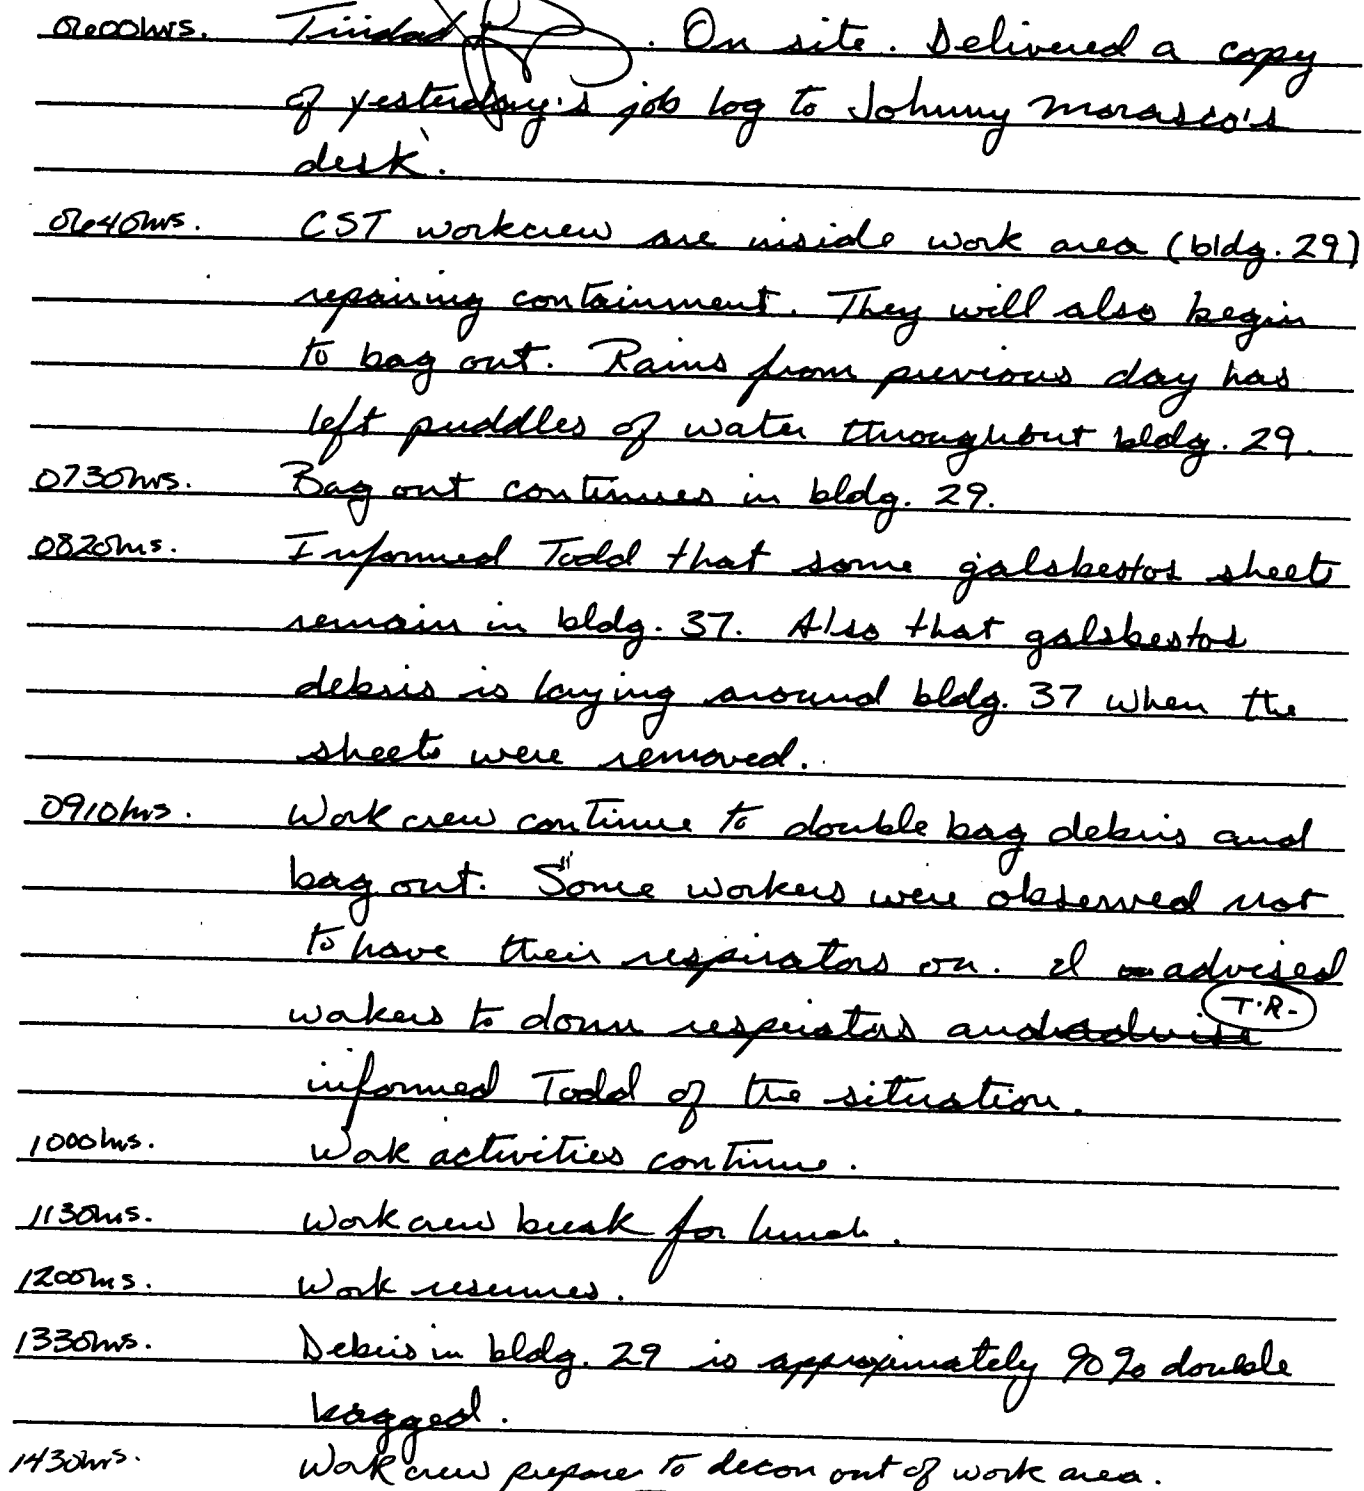 0600hrs. Trinidad . On site. Delivered a copy
of yesterday's job log to Johnny Morasco's
desk.
0640hrs. CST workcrew are inside work area (bldg. 29)
repairing containment. They will also begin
to bag out. Rains from previous day has
left puddles of water throughout bldg. 29.
0730hrs. Bag out continues in bldg. 29.
0820hrs. Informed Todd that some galsbestos sheets
remain in bldg. 37. Also that galsbestos
debris is laying around bldg. 37 when the
sheets were removed.
0910hrs. Work crew continue to double bag debris and
bag out. Some workers were observed not
to have their respirators on. I advised
workers to donn respirators and advise T.R.
informed Todd of the situation.
1000hrs. Work activities continue.
1130hrs. Work crew break for lunch.
1200hrs. Work resumes.
1330hrs. Debris in bldg. 29 is approximately 90% double
bagged.
1430hrs. Work crew prepare to decon out of work area.